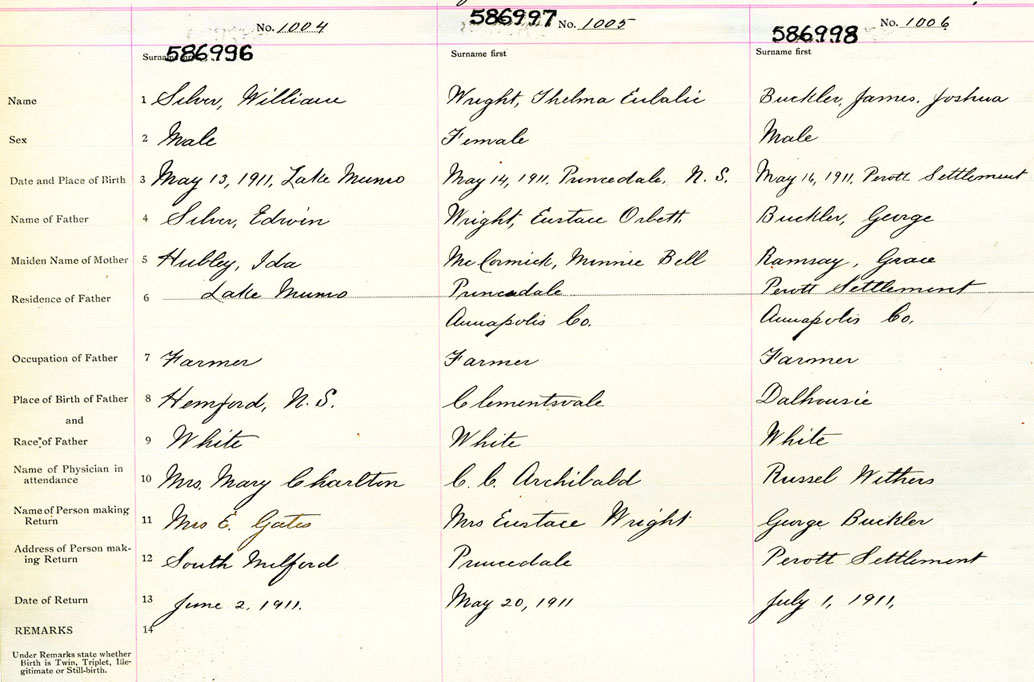 No. 1004 586997 No. 1005 No. 1006
586996 586998
Surname first Surname first Surname first
Name 1 Silver, William Wright, Thelma Eulalie Buckler, James, Joshua
Sex 2 Male Female Male
Date and Place of Birth 3 May 13, 1911, Lake Munro May 14, 1911, Princedale, N. S. May 16, 1911, Perott Settlement
Name of Father 4 Silver, Edwin Wright, Eustace Orbett Buckler, George
Maiden Name of Mother 5 Hubley, Ida McCormick, Minnie Bell Ramsay, Grace
Residence of Father 6 Lake Munro Princedale Perott Settlement
Annapolis Co. Annapolis Co.
Occupation of Father 7 Farmer Farmer Farmer
Place of Birth of Father 8 Hemford, N. S. Clementsvale Dalhousie
and
Race of Father 9 White White White
Name of Physician in
attendance 10 Mrs. Mary Charlton C. C. Archibald Russel Withers
Name of Person making
Return 11 Mrs E. Gates Mrs Eustace Wright George Buckler
Address of Person mak-
ing Return 12 South Milford Princedale Perott Settlement
Date of Return 13 June 2, 1911. May 20, 1911 July 1, 1911,
REMARKS 14
Under Remarks state whether
Birth is Twin, Triplet, Ille-
gitimate or Still-birth.